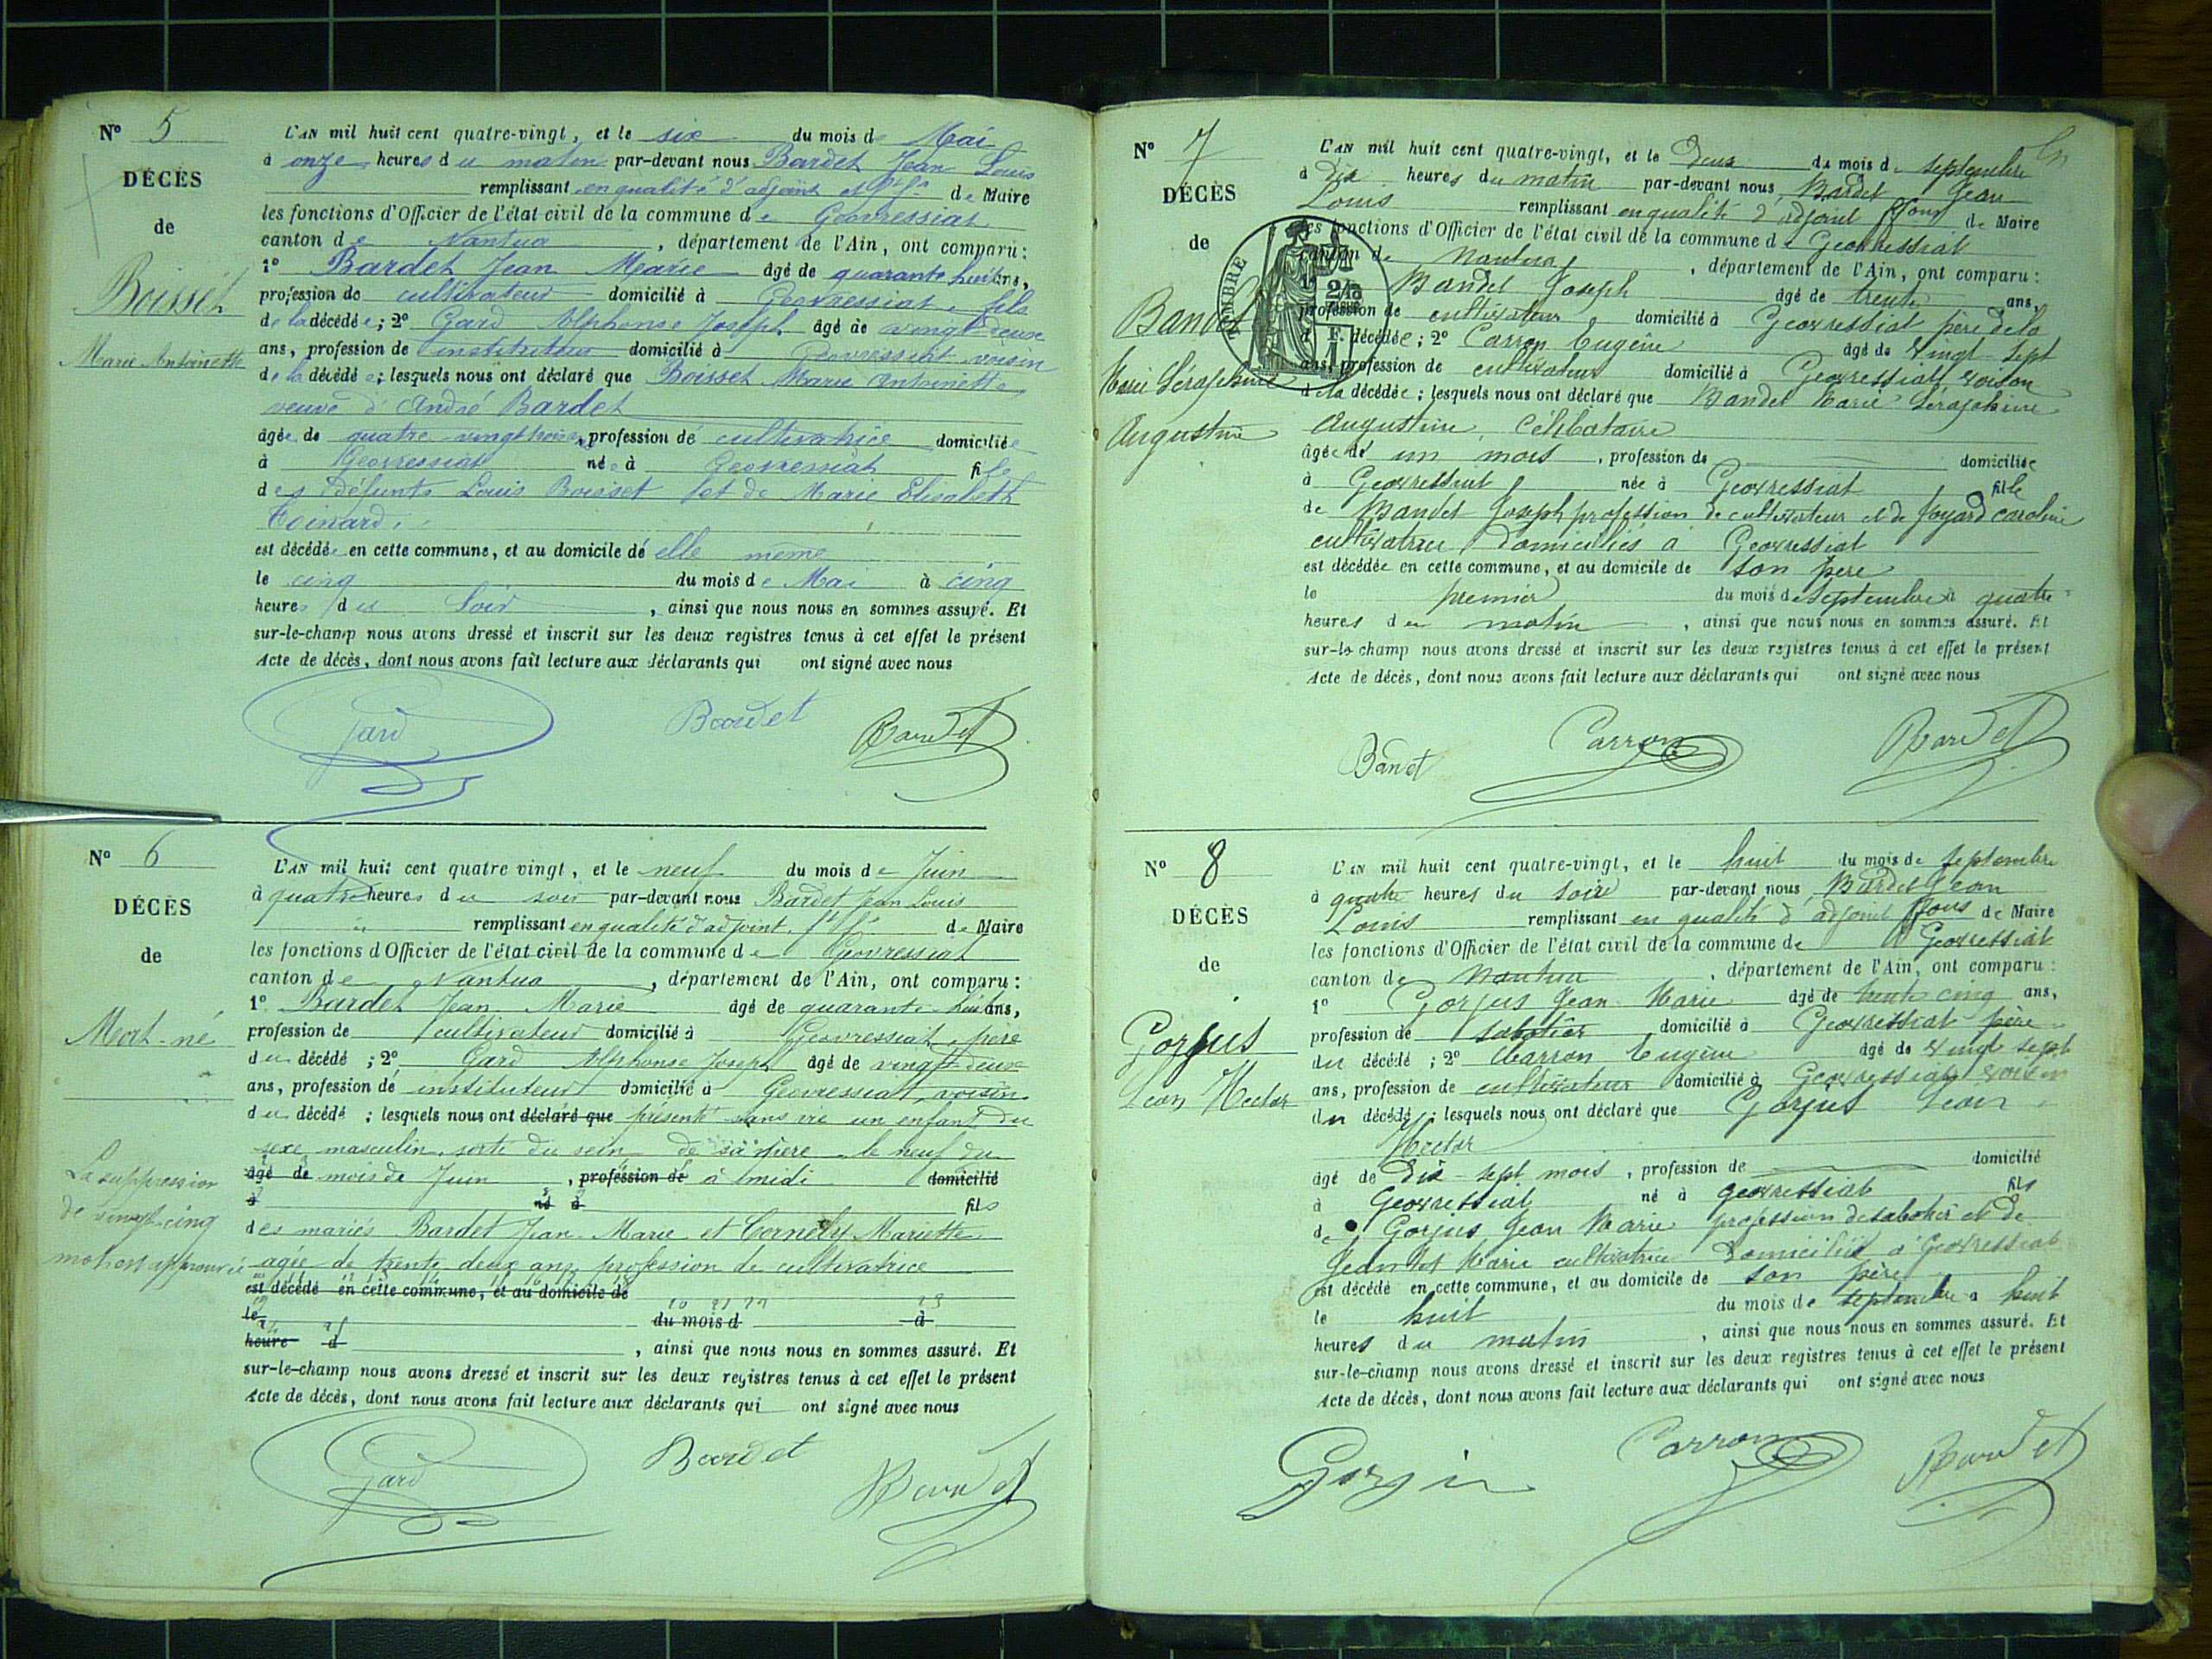 N° 5
DÉCÈS
de
Boisset
Marie Antoinette
L'AN mil huit cent quatre-vingt, et le six du mois de Mai
à onze heures du matin par-devant nous Bardet Jean Louis
remplissant en qualité d'adjoint de Maire
les fonctions d'Officier de l'état civil de la commune de Géovressiat
canton de Nantua, département de l'Ain, ont comparu:
1° Bardet Jean Marie âgé de quarante huit ans,
profession de cultivateur domicilié à Géovressiat, fils
de la décédée; 2° Gard Alphonse Joseph âgé de vingt-deux
ans, profession de instituteur domicilié à Géovressiat voisin
de la décédée; lesquels nous ont déclaré que Boisset Marie Antoinette
veuve d'André Bardet
âgée de quatre-vingt profession de cultivatrice domiciliée
à Géovressiat née à Géovressiat fille
des défunts Louis Boisset et de Marie Elisabeth
est décédée en cette commune, et au domicile de elle même
le cinq du mois de Mai à cinq
heures du soir, ainsi que nous nous en sommes assuré. Et
sur-le-champ nous avons dressé et inscrit sur les deux registres tenus à cet effet le présent
Acte de décès, dont nous avons fait lecture aux déclarants qui ont signé avec nous
Gard Bardet Bardet
N° 6
DÉCÈS
de
Mort-né
La suppression
de vingt-cinq
mots est approuvée
L'AN mil huit cent quatre vingt, et le neuf du mois de Juin
à quatre heures du soir par-devant nous Bardet Jean Louis
remplissant en qualité d'adjoint de Maire
les fonctions d'Officier de l'état civil de la commune de Géovressiat
canton de Nantua, département de l'Ain, ont comparu:
1° Bardet Jean Marie âgé de quarante-huit ans,
profession de cultivateur domicilié à Géovressiat, père
du décédé; 2° Gard Alphonse Joseph âgé de vingt-deux
ans, profession de instituteur domicilié à Géovressiat, voisin
du décédé; lesquels nous ont déclaré que présenté sans vie un enfant du
sexe masculin, sorti du sein de sa mère le neuf du
âgé de mois de Juin, profession de à midi domicilié
à né à fils
des mariés Bardet Jean-Marie et Cornély Mariette
agée de trente deux ans, profession de cultivatrice
est décédé en cette commune, et au domicile de
le du mois d à
heure d, ainsi que nous nous en sommes assuré. Et
sur-le-champ nous avons dressé et inscrit sur les deux registres tenus à cet effet le présent
Acte de décès, dont nous avons fait lecture aux déclarants qui ont signé avec nous
Gard Bardet Bardet
N° 7
DÉCÈS
de
Bandet
Marie Séraphine
Augustine
TIMBRE
L'AN mil huit cent quatre-vingt, et le deux du mois de septembre
à dix heures du matin par-devant nous Bardet Jean
Louis remplissant en qualité d'adjoint de Maire
les fonctions d'Officier de l'état civil de la commune de Géovressiat
canton de Nantua, département de l'Ain, ont comparu:
1° Bandet Joseph âgé de trente ans,
profession de cultivateur domicilié à Géovressiat père de la
décédée; 2° Carron Eugène âgé de vingt-sept
ans, profession de cultivateur domicilié à Géovressiat, voison
de la décédée; lesquels nous ont déclaré que Bandet Marie Séraphine
Augustine, Célibataire
âgée de un mois, profession de domiciliée
à Géovressiat née à Géovressiat fille
de Bandet Joseph profession de cultivateur et de Joyard caroline
cultivatrice domiciliés à Géovressiat
est décédée en cette commune, et au domicile de son père
le premier du mois de septembre à quatre
heures du matin, ainsi que nous nous en sommes assuré. Et
sur-le champ nous avons dressé et inscrit sur les deux registres tenus à cet effet le présent
Acte de décès, dont nous avons fait lecture aux déclarants qui ont signé avec nous
Bandet Carron Bardet
N° 8
DÉCÈS
de
Gorjus
Léon Hector
L'AN mil huit cent quatre-vingt, et le huit du mois de septembre
à quatre heures du soire par-devant nous Bardet Jean
Louis remplissant en qualité d'adjoint de Maire
les fonctions d'Officier de l'état civil de la commune de Géovressiat
canton de Nantua, département de l'Ain, ont comparu:
1° Gorjus Jean Marie âgé de trente cinq ans,
profession de sabotier domicilié à Géovressiat père
du décédé; 2° Carron Eugène âgé de vingt sept
ans, profession de cultivateur domicilié à Géovressiat voisin
du décédé; lesquels nous ont déclaré que Gorjus Léon
Hector
âgé de dix-sept mois, profession de domicilié
à Géovressiat né à Géovressiat fils
de Gorjus Jean Marie profession de sabotier et de
Marie cultivatrice domiciliés à Géovressiat
est décédé en cette commune, et au domicile de son père
le huit du mois de septembre à huit
heures du matin, ainsi que nous nous en sommes assuré. Et
sur-le-champ nous avons dressé et inscrit sur les deux registres tenus à cet effet le présent
Acte de décès, dont nous avons fait lecture aux déclarants qui ont signé avec nous
Carron Bardet